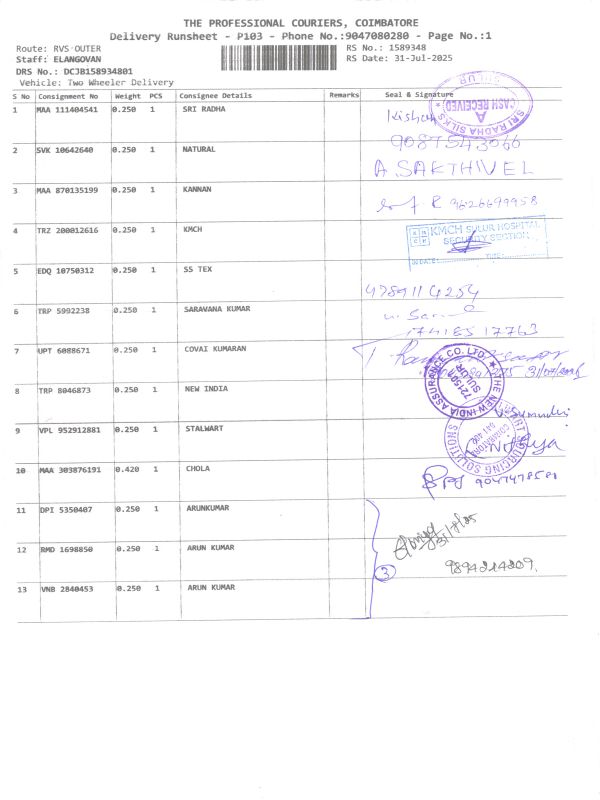 THE PROFESSIONAL COURIERS, COIMBATORE
Delivery Runsheet - P103 - Phone No.:9047080280 - Page No.:1
Route: RVS OUTER RS No.: 1589348
Staff: ELANGOVAN RS Date: 31-Jul-2025
DRS No.: DCJB158934801
Vehicle: Two Wheeler Delivery
S No Consignment No Weight PCS Consignee Details Remarks Seal & Signature
1 MAA 111404541 0.250 1 SRI RADHA Kishor
SRI RADHA SILKS CASH RECEIVED SULUR A
9087543066
2 SVK 10642640 0.250 1 NATURAL
A SAKTHIVEL
3 MAA 870135199 0.250 1 KANNAN
R 9626699958
4 TRZ 200012616 0.250 1 KMCH KMCH SULUR HOSPITAL
SECURITY SECTION
DATE: TIME:
5 EDQ 10750312 0.250 1 SS TEX
4789114254
6 TRP 5992238 0.250 1 SARAVANA KUMAR
7 UPT 6088671 0.250 1 COVAI KUMARAN
8 TRP 8046873 0.250 1 NEW INDIA
THE NEW INDIA ASSURANCE CO. LTD. 721501 SULUR
9 VPL 952912881 0.250 1 STALWART
SOURCING SOLUTIONS
Nithya
10 MAA 303876191 0.420 1 CHOLA
9047478581
11 DPI 5350407 0.250 1 ARUNKUMAR
31/7/25
12 RMD 1698850 0.250 1 ARUN KUMAR
3 9894214209.
13 VNB 2840453 0.250 1 ARUN KUMAR